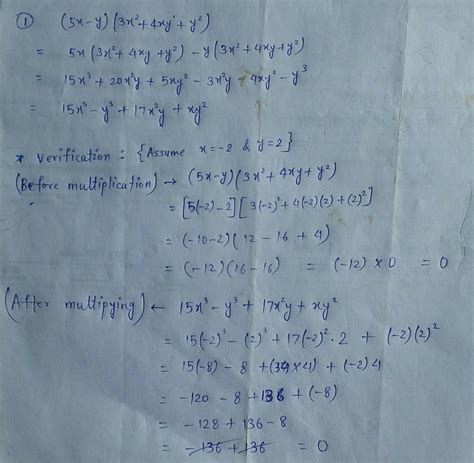 ① (5x-y)(3x²+4xy+y²)
= 5x(3x²+4xy+y²) -y(3x²+4xy+y²)
= 15x³+20x²y+5xy²-3x²y-4xy²-y³
= 15x³-y³+17x²y+xy²
* Verification: {Assume x=-2 & y=2}
(Before multiplication) → (5x-y)(3x²+4xy+y²)
= [5(-2)-2][3(-2)²+4(-2)(2)+(2)²]
= (-10-2)(12-16+4)
= (-12)(16-16) = (-12)×0 = 0
(After multipying) ← 15x³-y³+17x²y+xy²
= 15(-2)³-(2)³+17(-2)²·2 + (-2)(2)²
= 15(-8)-8+(34×4)+(-2)4
= -120-8+136+(-8)
= -128+136-8
= -136+136 = 0